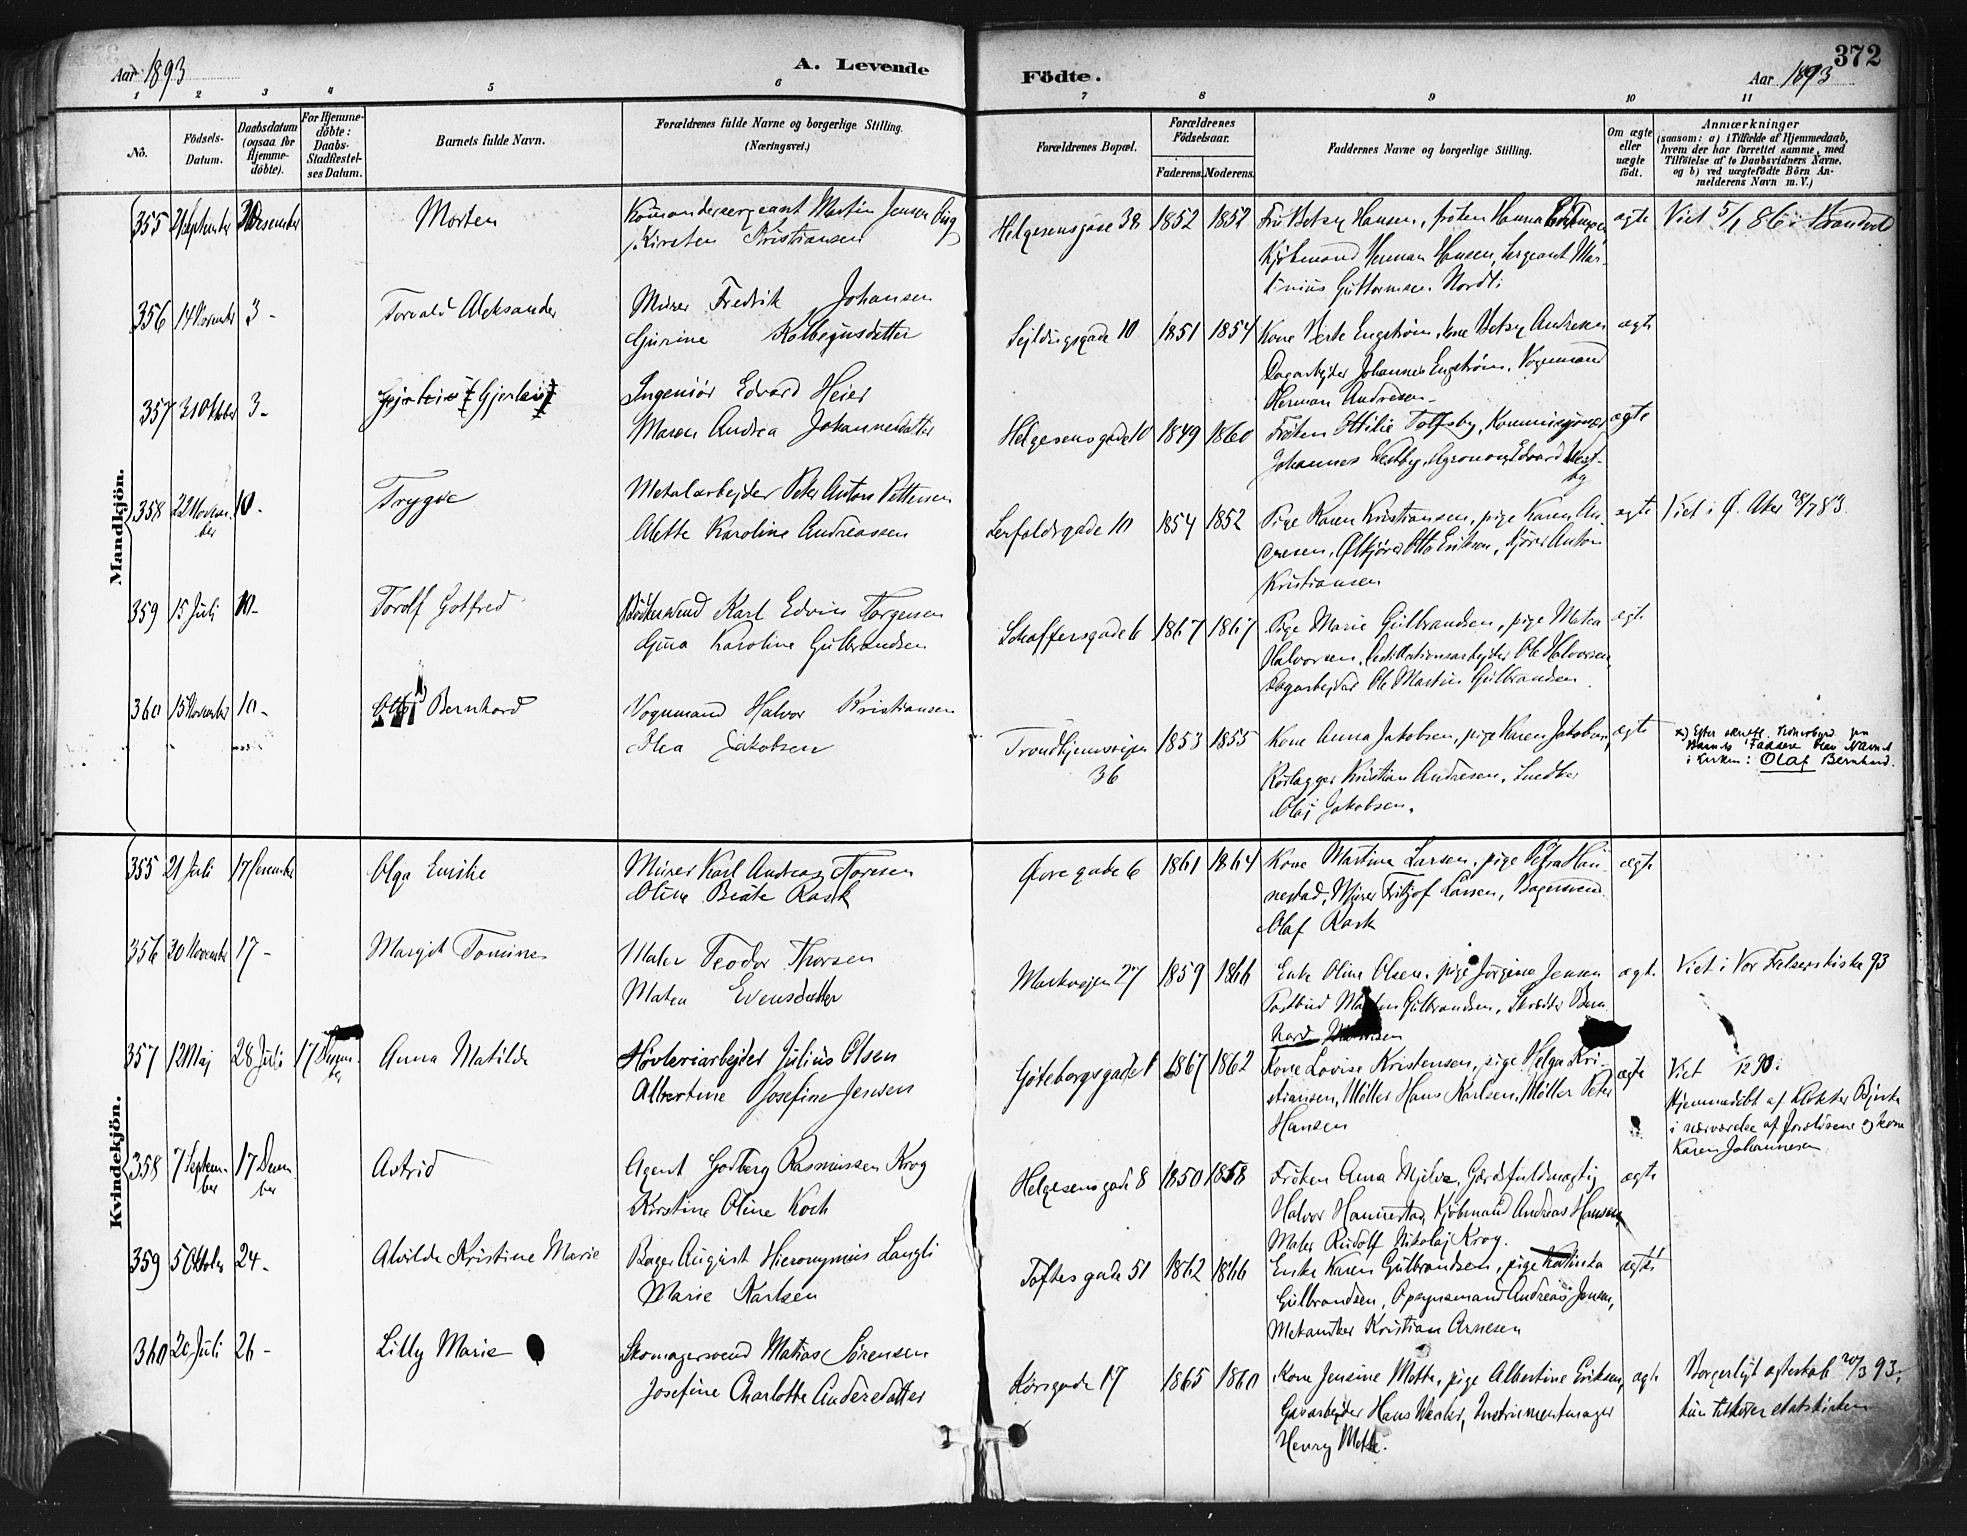 372
Aar 1893
A. Levende
Födte.
Aar 1893
1 2 3 4 5 6 7 8 9 10 11
No.
Födsels-Datum.
Daabsdatum (ogsaa for Hjemme-döbte).
For Hjemme-döbte: Daabs-Stadfæstel-ses Datum.
Barnets fulde Navn.
Forældrenes fulde Navne og borgerlige Stilling. (Næringsvei.)
Forældrenes Bopæl.
Forældrenes Födselsaar.
Faderens. Moderens.
Faddernes Navne og borgerlige Stilling.
Om ægte eller uægte födt.
Anmærkninger
(saasom: a) i Tilfælde af Hjemmedaab, hvem der har forrettet samme, med Tilföielse af to Daabsvidners Navne, og b) ved uægtefödte Börn An-melderens Navn m. V.)
Mandkjön.
355 21 September December Morten Martin Jensen
Kirsten Kristiansen
Helgesensgade 38 1852 1852 Fru Betsy Hansen, frøken Hanna
ægte
Kjøbmand Herman Hansen, Sergeant Mar-
tinius Guttormsen Nordli
356 14 November 3 - Torvald Aleksander Murer Fredrik Johansen
Gurine
10 1851 1854 Kone Engstrøm, kone Betsy Andresen ægte
Dagarbejder Johannes Engstrøm, Vognmand
Herman Andresen
357 31 Oktober 3 - Ingeniør Edvard Heier
Maren Andrea Johannesdatter
Helgesensgade 10 1849 1860 Frøken Ottilie ægte
Johannes Agronom Edvard
358 22 Novem-
ber 10 - Trygve Metalarbejder Peter Anton Pettersen
Alette Karoline Andreassen
10 1854 1852 Pige Karen Kristiansen, pige Karen An- ægte Viet i Ø. Aker 28/7 83.
dresen, Otto Eriksen, Anton
Kristiansen
359 15 Juli 10 - Torolf Gotfred Karl Edvin Torgersen
Gina Karoline Gulbrandsen
Schaffersgade 6 1867 1867 Pige Marie Gulbrandsen, pige Matea ægte
Halvorsen, Destillationsarbejder Ole Halvorsen,
Dagarbejder Ole Martin Gulbrandsen.
360 15 November 10 - Bernhard Vognmand Halvor Kristiansen
Olea Jakobsen
Trondhjemsvejen
36 1853 1855 Kone Anna Jakobsen, pige Karen Jakobsen, ægte
Rørlægger Kristian Andresen, Snedker
Olaf Jakobsen.
x) Efter
Barnets Faddere blev Navnet
i Kirken: Olaf Bernhard.
Kvindekjön.
355 21 Juli 17 December Olga Murer Karl Andreas Toresen
Olina Beate Rask
6 1861 1864 Kone Martine Larsen, pige Petra Han- ægte
nestad, Murer Fritjof Larsen, Bagersvend
Olaf Rask
356 30 November 17 - Margit Maler Teodor Thorsen
Matea Evensdatter
Markvejen 27 1859 1866 Enke Oline Olsen, pige Jørgine Jensen ægte Viet i Vor Frelsers kirke 93
Postbud Gulbrandsen, Skrædder Bern-
hard
357 12 Maj 28 Juli 17 Anna Matilde Høvleriarbejder Julius Olsen
Albertine Josefine Jensen
Göteborgsgade 1 1867 1862 Kone Lovise Kristensen, pige Helga Kri- ægte
stiansen, Møller Hans Karlsen, Møller Peter
Hansen
Viet
Hjemmedøbt af
i nærværelse af og kone
Karen Johannesen
358 7 Septem-
ber 17 Decem-
ber Astrid Agent Rasmussen Krog
Kirstine Oline Koch
Helgesensgade 8 1850 1858 Frøken Anna Gaardsfuldmægtig ægte
Halvor Hannestad, Kjøbmand Andreas Hansen,
Maler Rudolf Nikolaj Krog.
359 5 Oktober 24 - Alvilde Kristine Marie Bager August Hieronymus Langli
Marie Karlsen
Toftesgade 51 1862 1866 Enke Karen Gulbrandsen, pige Katinka ægte
Gulbrandsen, Opsynsmand Andreas Jensen,
Mekaniker Kristian Arnesen
360 20 Juli 26 - Lilly Marie Skomagersvend Matias Sørensen
Josefine Charlotte Andersdatter
17 1865 1860 Kone Jensine Mette, pige Albertine Eriksen, ægte
Gasarbejder Hans Instrumentmager
Henry Mette.
Borgerligt ægteskab 20/3 93,
hun tilhører statskirken